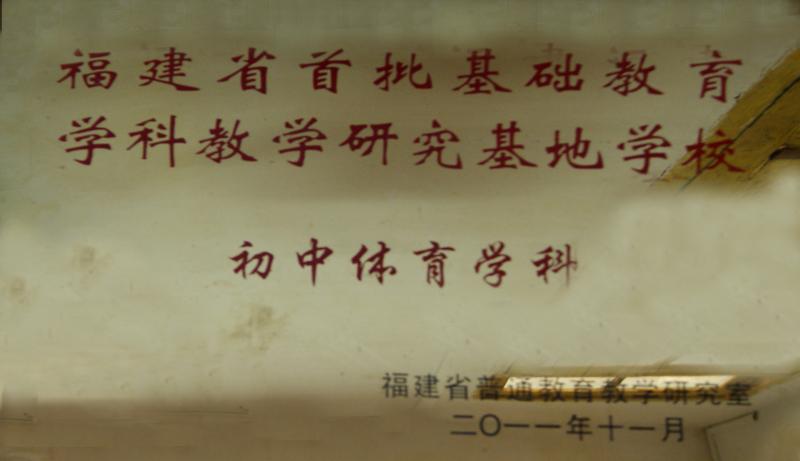 福建省首批基础教育
学科教学研究基地学校
初中体育学科
福建省普通教育教学研究室
二〇一一年十一月